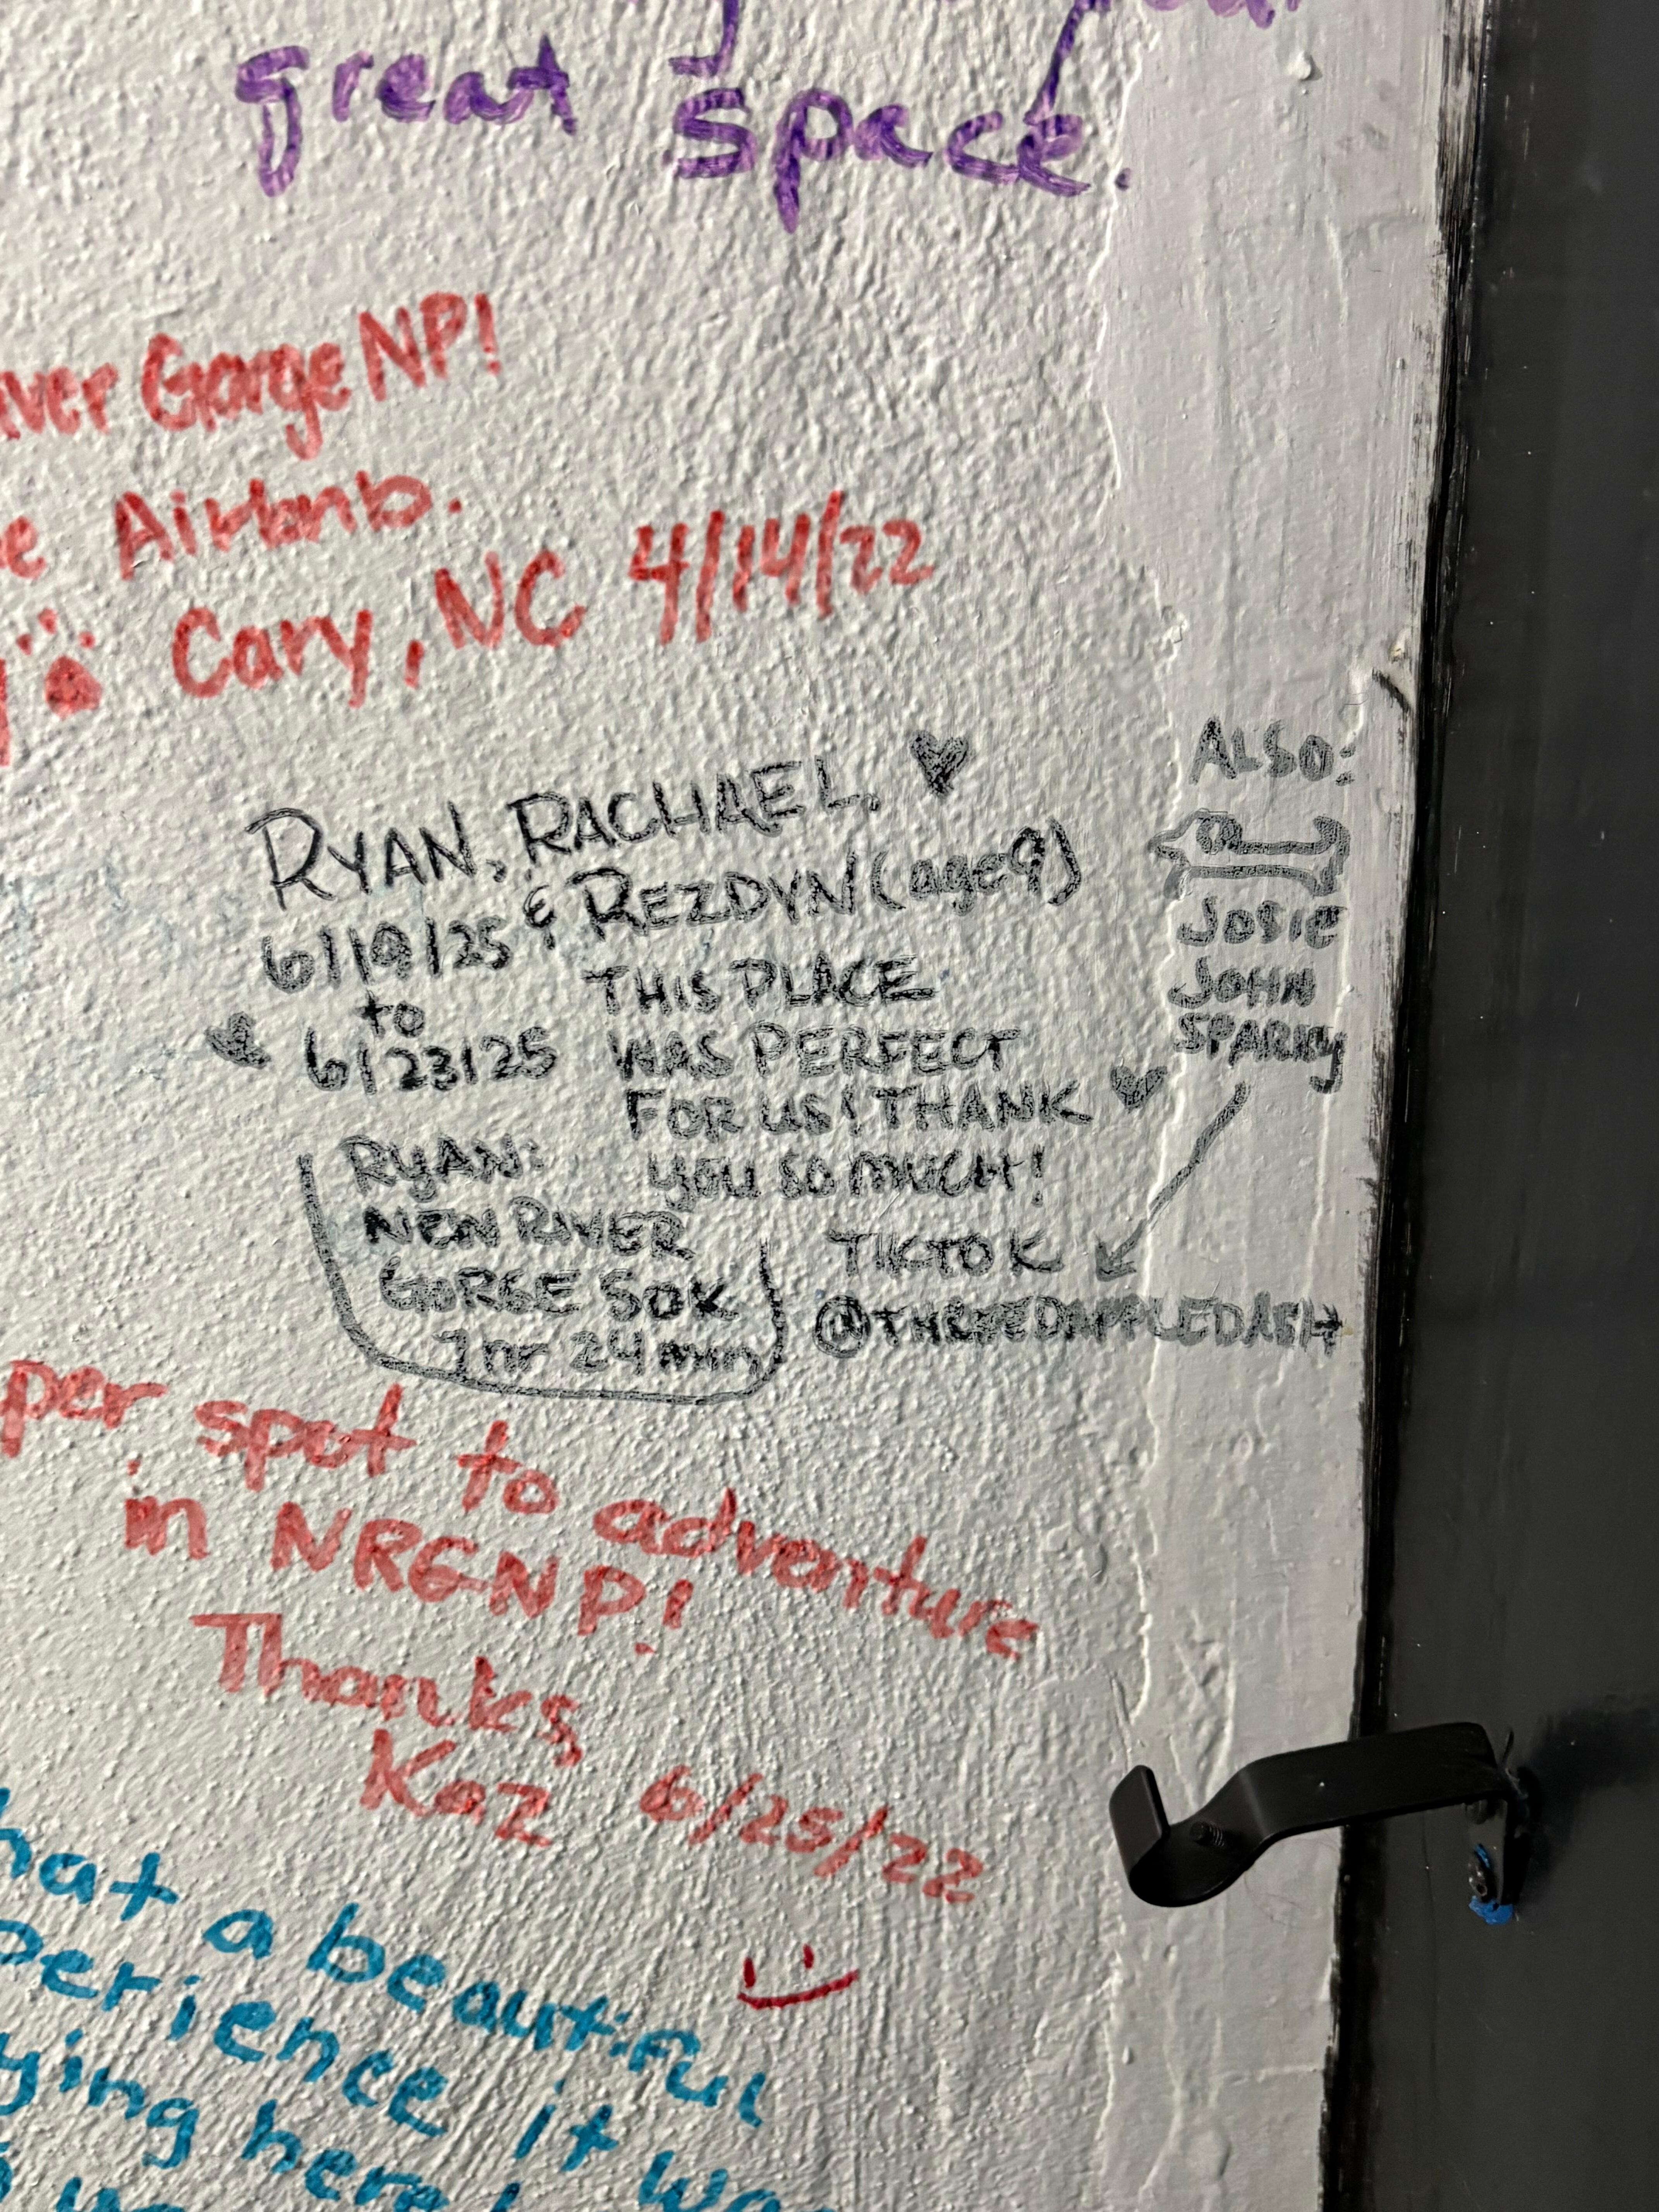 great space.
Gorge NP!
Airbnb.
Cary, NC 4/14/22
RYAN, RACHAEL,
& REZDYN (age 9)
6/19/25
to
6/23/25
THIS PLACE
WAS PERFECT
FOR US! THANK
YOU SO MUCH!
ALSO:
JOSIE
JOHN
SPARKY
TIKTOK
@THREEDAPPLEDASH
RYAN:
NEW RIVER
GORGE 50K
7hr 24min
spot to adventure
in NRGNP!
Thanks
Kaz 6/25/22
a beautiful
it
here